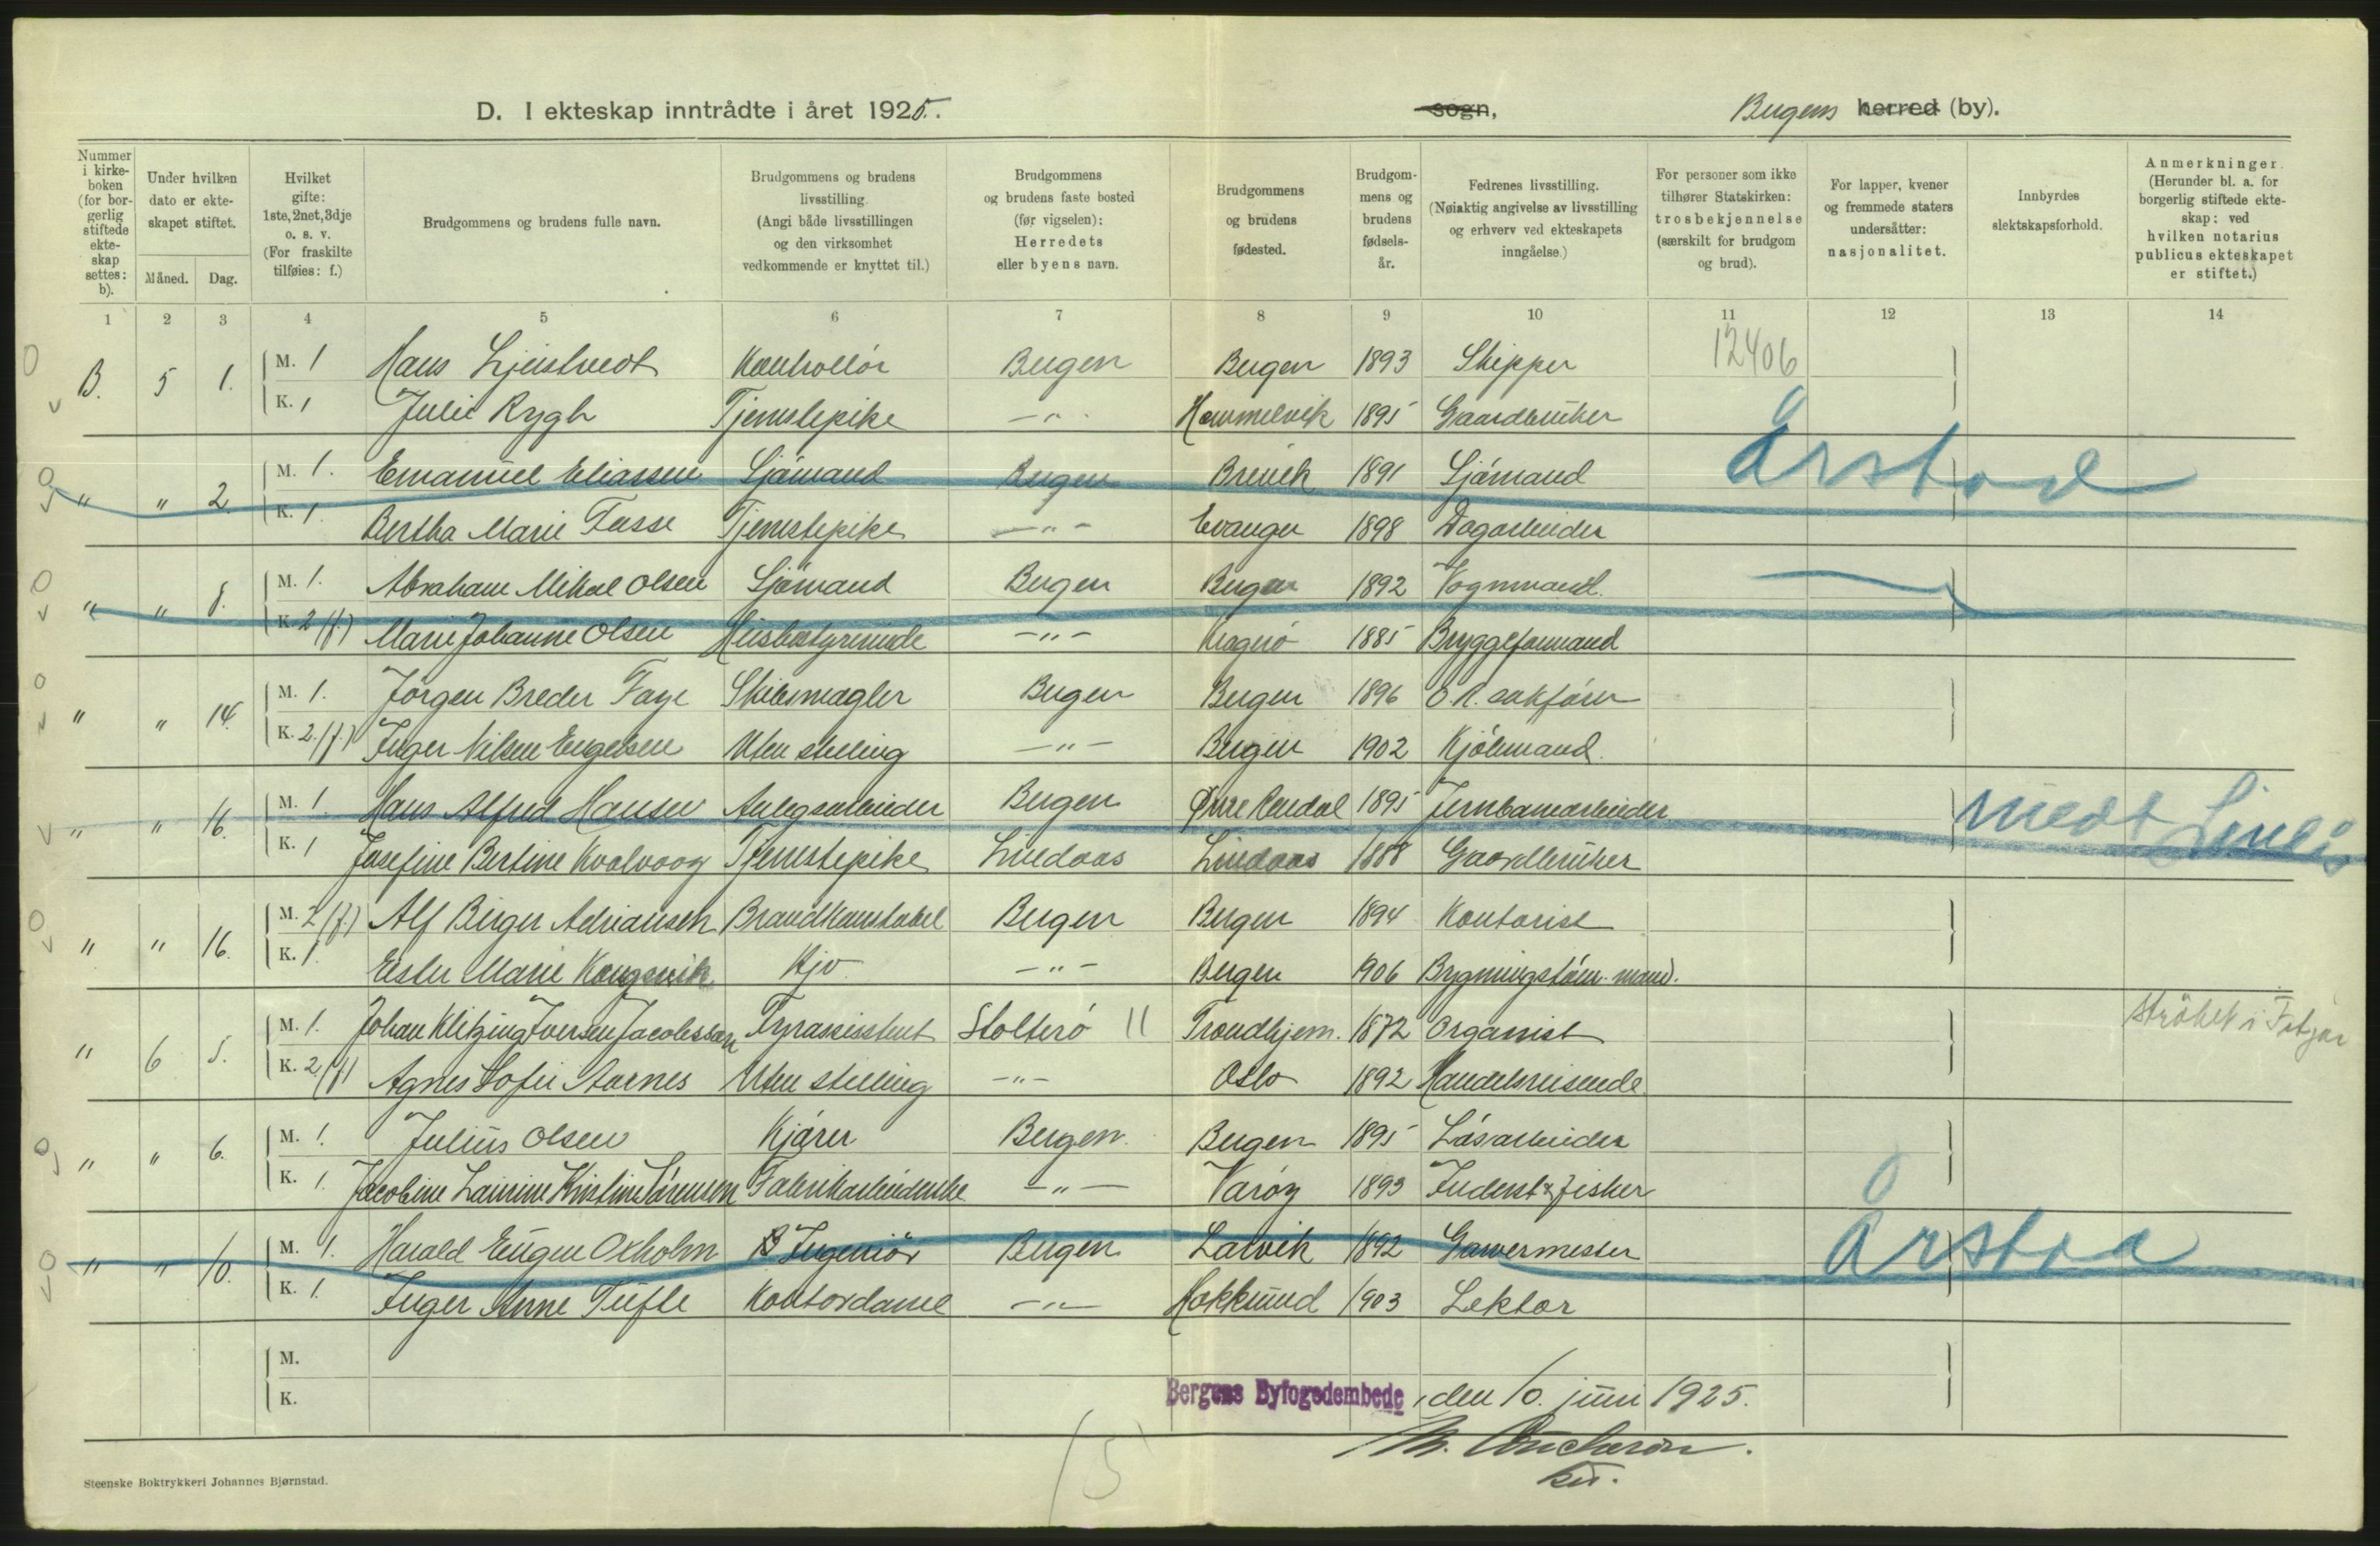 D. I ekteskap inntrådte i året 1925.
sogn,
Bergens herred (by).
Nummer i kirke-boken (for bor-gerlig stiftede ekte-skap settes: b).
Under hvilken dato er ekte-skapet stiftet.
Måned.
Dag.
Hvilket gifte: 1ste, 2net, 3dje o. s. v. (For fraskilte tilføies: f.)
Brudgommens og brudens fulle navn.
Brudgommens og brudens livsstilling. (Angi både livsstillingen og den virksomhet vedkommende er knyttet til.)
Brudgommens og brudens faste bosted (før vigselen): Herredets eller byens navn.
Brudgommens og brudens fødested.
Brudgom-mens og brudens fødsels-år.
Fedrenes livsstilling. (Nøiaktig angivelse av livsstilling og erhverv ved ekteskapets inngåelse.)
For personer som ikke tilhører Statskirken: trosbekjennelse (særskilt for brudgom og brud).
For lapper, kvener og fremmede staters undersåtter: nasjonalitet.
Innbyrdes slektskapsforhold.
Anmerkninger. (Herunder bl. a. for borgerlig stiftede ekte-skap: ved hvilken notarius publicus ekteskapet er stiftet.)
1 2 3 4 5 6 7 8 9 10 11 12 13 14
B. 5 1. M. 1 Hans Kontrollör Bergen Bergen 1893 Skipper 12406
K. 1 Julie Rygh Tjenestepike —"— Hommelvik 1895 Gaardbruker
" " 2. M. 1. Emanuel Eliassen Sjömand Bergen Brevik 1891 Sjömand Årstad
K. 1 Bertha Marie Fasse Tjenestepike —"— Evanger 1898 Dagarbeider
" " 8. M. 1. Abraham Mikal Olsen Sjömand Bergen Bergen 1892 Vognmand.
K. 2 (f.) Marie Johanne Olsen Husbestyrerinde —"— Kragerö 1885 Bryggeformand
" " 14. M. 1. Jörgen Breder Faye Skibsmægler Bergen Bergen 1896 O.R. sakförer
K. 2. (f.) Inger Nilsen Engelsen Uten stilling —"— Bergen 1902 Kjöbmand.
" " 16. M. 1. Hans Alfred Hansen Anlegsarbeider Bergen Øvre Rendal 1895 Jernbanearbeider
K. 1 Josefine Bertine Kvalvaag Tjenestepike Lindaas Lindaas 1888 Gaardbruker
" " 16. M. 2 (f.) Alf Birger Adriansen Brandkonstabel Bergen Bergen 1894 Kontorist
K. 1. Ester Marie Kongsvik —"— Bergen 1906 Bygningstöm.mand.
" 6 5. M. 1. Johan Klitzing Iversen Jacobssen Fyrassistent Stolterö Trondhjem. 1872 Organist
K. 2. (f) Agnes Sofie Aarnes Uten stilling —"— Oslo 1892 Handelsreisende
" " 6. M. 1. Julius Olsen Kjörer Bergen Bergen 1895 Lösarbeider
K. 1. Jacobine Laurine Kristine Sörensen Fabrikarbeiderske —"— Varöy 1893 Inderst & fisker
" " 10. M. 1. Harald Eugen Oxholm Ingeniör Bergen Larvik 1892 Garvermester Årstad
K. 1. Inger Anne Tufte Kontordame —"— Hokksund 1903 Lektor
M.
K.
Bergens Byfogedembede, den 10. juni 1925.
kst.
Steenske Boktrykkeri Johannes Bjørnstad.